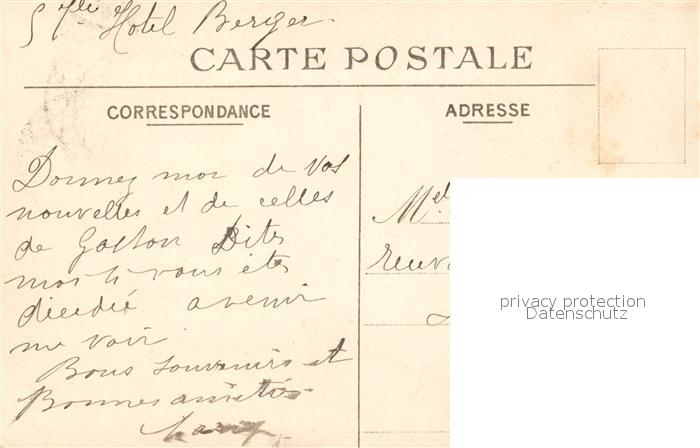 Hotel Berger
CARTE POSTALE
CORRESPONDANCE
ADRESSE
Donnez moi de vos
nouvelles et de celles
de Gaston Dites
moi si vous êtes
décidé a venir
me voir
Bons souvenirs et
Bonnes amitiés
Mel
privacy protection
Datenschutz